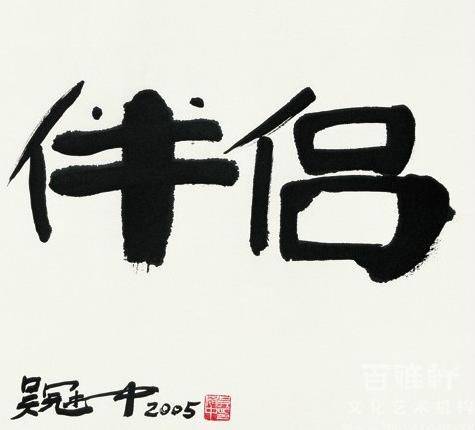 伴侣
吴冠中 2005
吴冠中
百雅轩
文化艺术机构